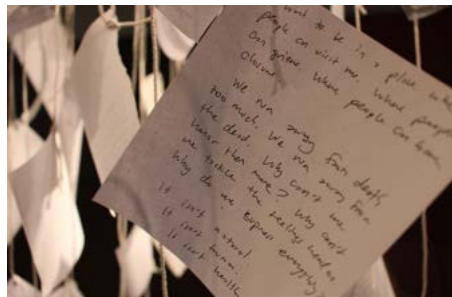 want to be in a place where
people can visit me. Where people
can grieve. Where people can
We run away from death
too much. We run away from
the dead. Why can't we
honor them more? Why can't
we tackle the feelings head on
Why do we express everything
It isn't natural
It isn't
It isn't health